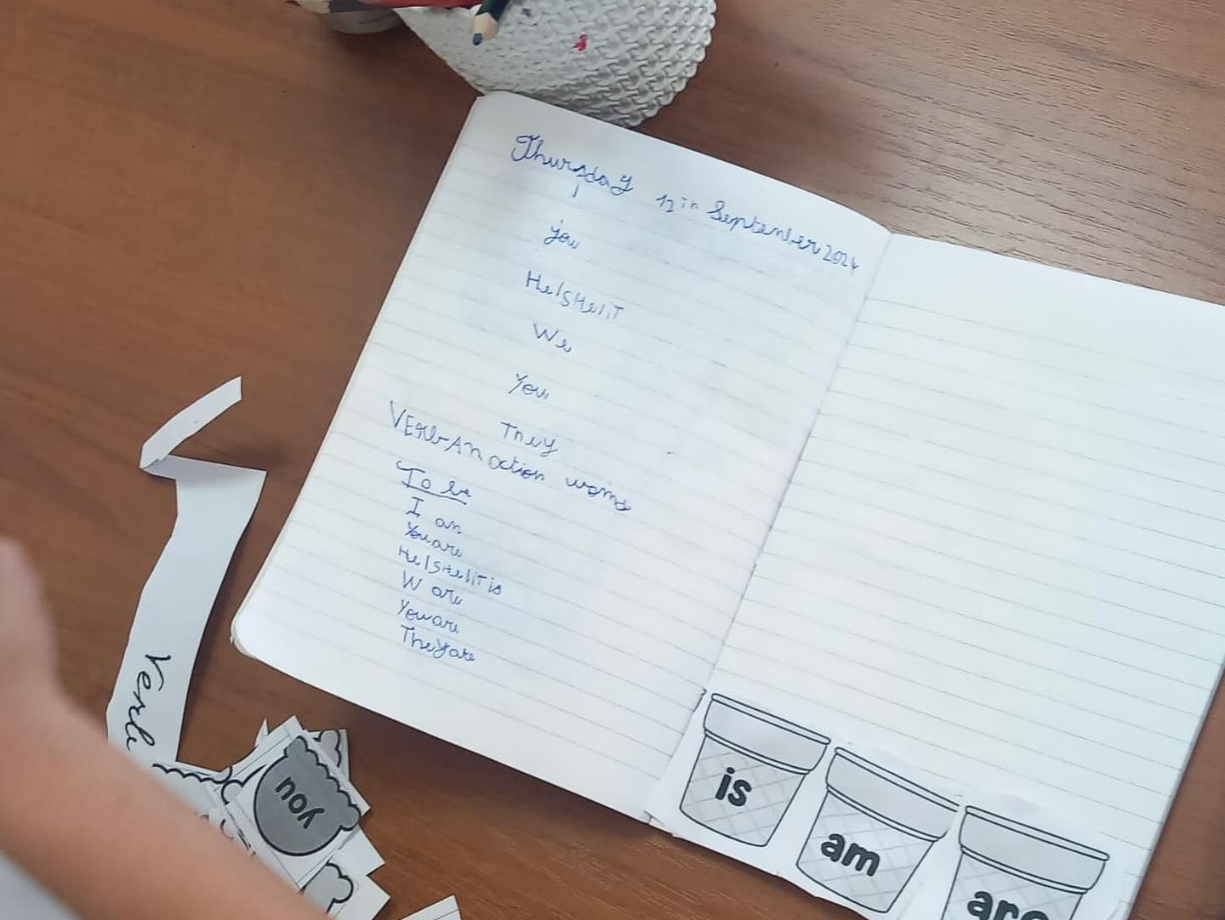 Thursday 12th September 2024
I
You
He/SHe/iT
We
You
They
VERb-An action words
To be
I am
You are
He/SHe/iT is
W are
You are
They are
Verb
you
is
am
are